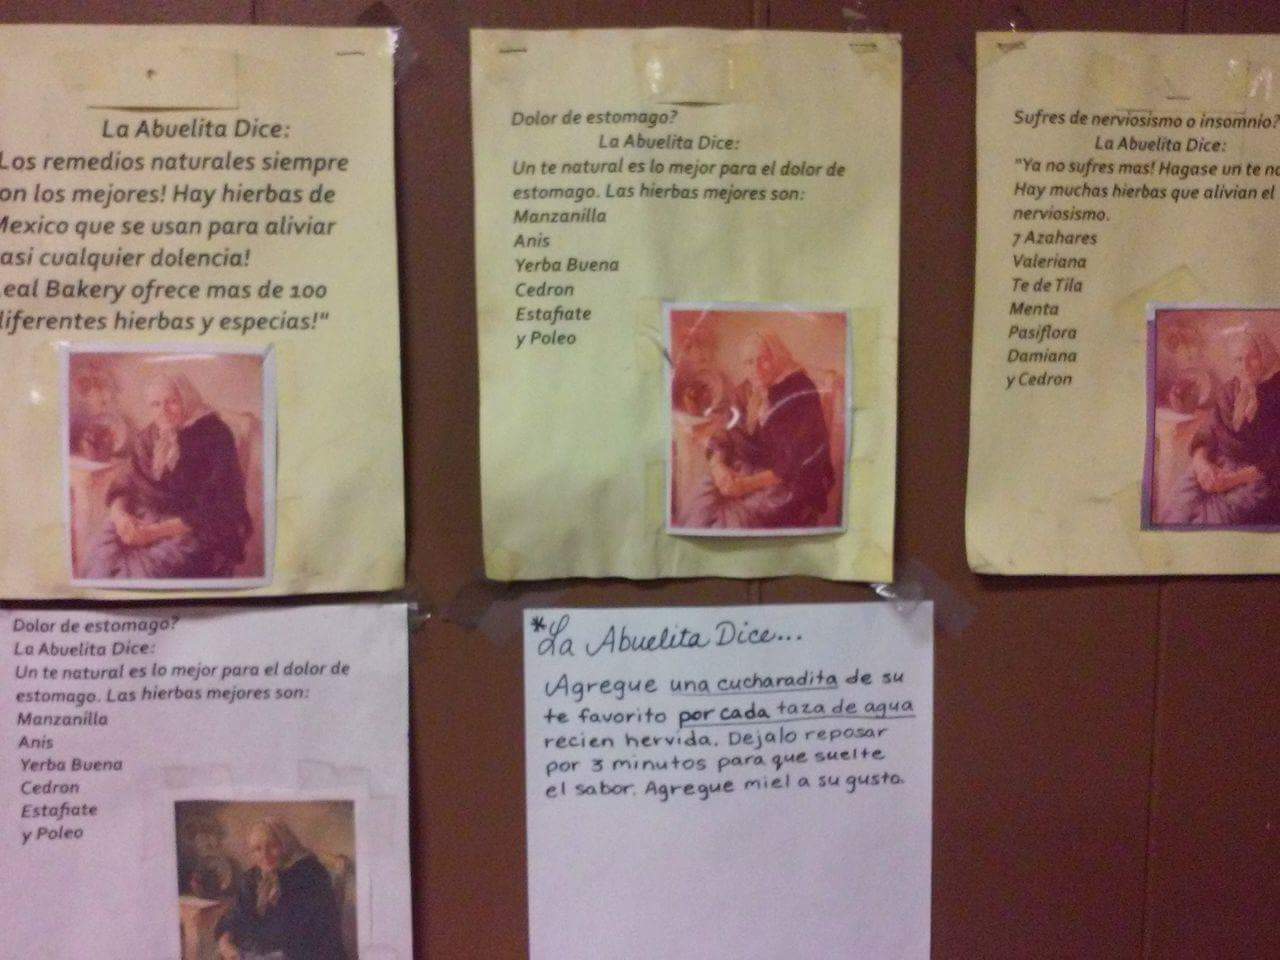 La Abuelita Dice:
Los remedios naturales siempre
on los mejores! Hay hierbas de
Mexico que se usan para aliviar
asi cualquier dolencia!
eal Bakery ofrece mas de 100
diferentes hierbas y especias!"
Dolor de estomago?
La Abuelita Dice:
Un te natural es lo mejor para el dolor de
estomago. Las hierbas mejores son:
Manzanilla
Anis
Yerba Buena
Cedron
Estafiate
y Poleo
Sufres de nerviosismo o insomnio?
La Abuelita Dice:
"Ya no sufres mas! Hagase un te na
Hay muchas hierbas que alivian el
nerviosismo.
7 Azahares
Valeriana
Te de Tila
Menta
Pasiflora
Damiana
y Cedron
Dolor de estomago?
La Abuelita Dice:
Un te natural es lo mejor para el dolor de
estomago. Las hierbas mejores son:
Manzanilla
Anis
Yerba Buena
Cedron
Estafiate
y Poleo
*La Abuelita Dice...
Agregue una cucharadita de su
te favorito por cada taza de agua
recien hervida. Dejalo reposar
por 3 minutos para que suelte
el sabor. Agregue miel a su gusto.